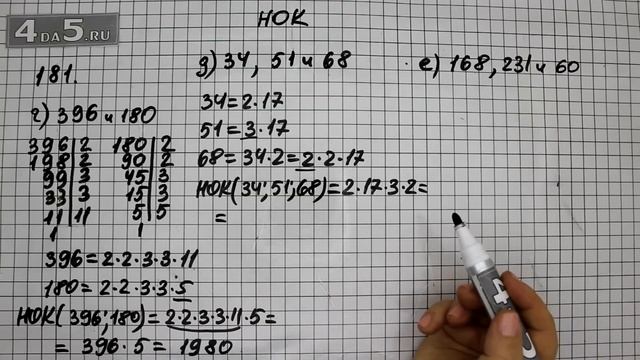 4DA5.RU
НОК
181.
г) 396 и 180
396|2 180|2
198|2 90|2
99|3 45|3
33|3 15|3
11|11 5|5
1 1
396=2·2·3·3·11
180=2·2·3·3·5
НОК(396;180)=2·2·3·3·11·5=
=396·5=1980
д) 34, 51 и 68
34=2·17
51=3·17
68=34·2=2·2·17
НОК(34;51;68)=2·17·3·2=
=
е) 168, 231 и 60
4